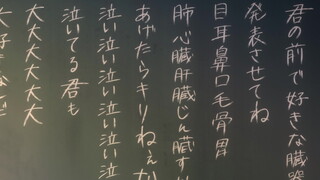 君の前で好きな臓器
発表させてね
目耳鼻口毛骨胃
肺心臓肝臓じん臓すい
あげたらきりねぇな
泣い泣い泣い泣い泣
泣いてる君も
大大大大大
大好きなど